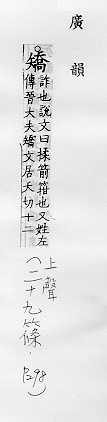 廣韻
矯詐也說文曰揉箭箝也又姓左
傳晉大夫矯父居夭切十二
上聲
(二十九篠.
P298)